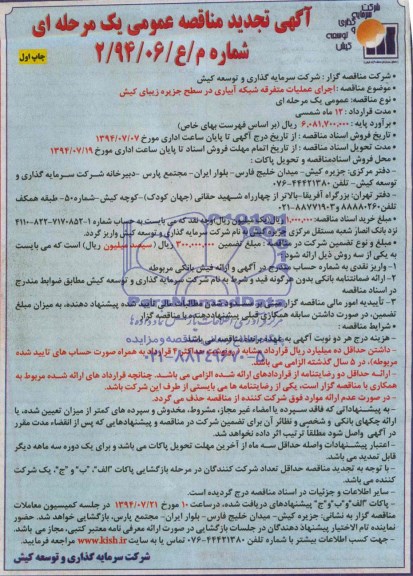 شرکت سرمایه گذاری و توسعه کیش
آگهی تجدید مناقصه عمومی یک مرحله ای
شماره م/ع/۲/۹۴/۰۶
چاپ اول
• شرکت مناقصه گزار : شرکت سرمایه گذاری و توسعه کیش
• موضوع مناقصه : اجرای عملیات متفرقه شبکه آبیاری در سطح جزیره زیبای کیش
• نوع مناقصه: عمومی یک مرحله ای
• مدت قرارداد : ۱۲ ماه شمسی
• برآورد پایه : ۶,۰۸۱,۷۰۰,۰۰۰ ریال (بر اساس فهرست بهای خاص)
• تاریخ فروش اسناد مناقصه : از تاریخ درج آگهی تا پایان ساعت اداری مورخ ۱۳۹۴/۰۷/۰۷
• مدت تحویل اسناد مناقصه : از تاریخ اتمام مهلت فروش اسناد تا پایان ساعت اداری مورخ ۱۳۹۴/۰۷/۱۹
• محل فروش اسناد مناقصه و تحویل پاکات :
- دفتر مرکزی: جزیره کیش- میدان خلیج فارس- بلوار ایران- مجتمع پارس -دبیرخانه شرکت سرمایه گذاری و توسعه کیش- تلفن ۴۴۴۲۱۳۸۰-۰۷۶
- دفتر تهران: بزرگراه آفریقا-بالاتر از چهارراه شهید حقانی (جهان کودک) -کوچه کیش-شماره۵۰- طبقه همکف تلفن: ۸۸۸۸۰۲۶۰ و ۸۸۷۷۱۹۰۳-۰۲۱
• مبلغ خرید اسناد مناقصه: ۱,۰۰۰,۰۰۰ ریال (یک میلیون ریال) وجه نقد که می بایست به حساب شماره ۱-۷۱۷۰۸۵۲-۸۲۲-۴۱۱۰ نزد بانک انصار شعبه مستقل مرکزی جزیره کیش به نام شرکت سرمایه گذاری و توسعه کیش واریز گردد.
• مبلغ و نوع تضمین شرکت در مناقصه : مبلغ تضمین ۳۰۰,۰۰۰,۰۰۰ ریال (سیصد میلیون ریال) است که می بایست به یکی از سه روش ذیل ارائه شود:
۱- واریز نقدی به شماره حساب مندرج در آگهی و ارائه فیش بانکی مربوطه
۲- ارائه ضمانتنامه بانکی بدون هرگونه قید و شرط به نام شرکت سرمایه گذاری و توسعه کیش مطابق ضوابط مندرج در اسناد مناقصه
۳- تأییدیه امور مالی مناقصه گزار مبنی بر مطالبات مالی تأیید شده پیشنهاد دهنده، به میزان مبلغ تضمین، در صورت داشتن سابقه همکاری قبلی پیشنهاد دهنده با مناقصه گزار
• شرایط مناقصه :
- هزینه درج هر دو نوبت آگهی به عهده برنده مناقصه می باشد.
- داشتن حداقل ده میلیارد ریال قرارداد مشابه در قرارداد به همراه صورت حساب های تایید شده مربوطه)، در ۵ سال گذشته الزامی می باشد.
- ارائه حداقل دو رضایتنامه از قراردادهای ارائه شده الزامی می باشد. چنانچه قرارداد های ارائه شده مربوط به همکاری با مناقصه گزار است، یکی از رضایتنامه ها می بایستی از طرف این شرکت باشد.
- در صورت عدم ارائه موارد فوق شرکت کننده از مناقصه حذف می گردد.
- به پیشنهاداتی که فاقد سپرده یا امضاء غیر مجاز، مشروط، مخدوش و سپرده های کمتر از میزان تعیین شده، یا ارائه چکهای بانکی و شخصی و نظائر آن برای تضمین شرکت در مناقصه و پیشنهادهایی که پس از انقضاء مدت مقرر در آگهی واصل شود مطلقا ترتیب اثر داده نخواهد شد.
- اعتبار پیشنهادات واصله حداقل سه ماه از آخرین مهلت تحویل پاکات می باشد و برای یک دوره سه ماهه دیگر قابل تمدید می باشد.
- با توجه به تجدید مناقصه حداقل تعداد شرکت کنندگان در مرحله بازگشایی پاکات "الف"، "ب" و "ج"، یک شرکت کننده می باشد.
- سایر اطلاعات و جزئیات در اسناد مناقصه درج گردیده است.
- پاکات "الف" و "ب" و "ج" پیشنهادهای دریافت شده، درساعت ۱۰ مورخ ۱۳۹۴/۰۷/۲۱ در جلسه کمیسیون معاملات مناقصه گزار به نشانی: جزیره کیش- میدان خلیج فارس- بلوار ایران- مجتمع پارس، بازگشایی خواهد شد. حضور نماینده تام الاختیار پیشنهاد دهندگان در جلسات بازگشایی در صورت ارائه معرفی نامه معتبر کتبی، مجاز می باشد.
- جهت کسب اطلاعات بیشتر با شماره تلفن ۴۴۴۲۱۳۸۰-۰۷۶ تماس یا به سایت www.kish.ir مراجعه فرمایید.
شرکت سرمایه گذاری و توسعه کیش